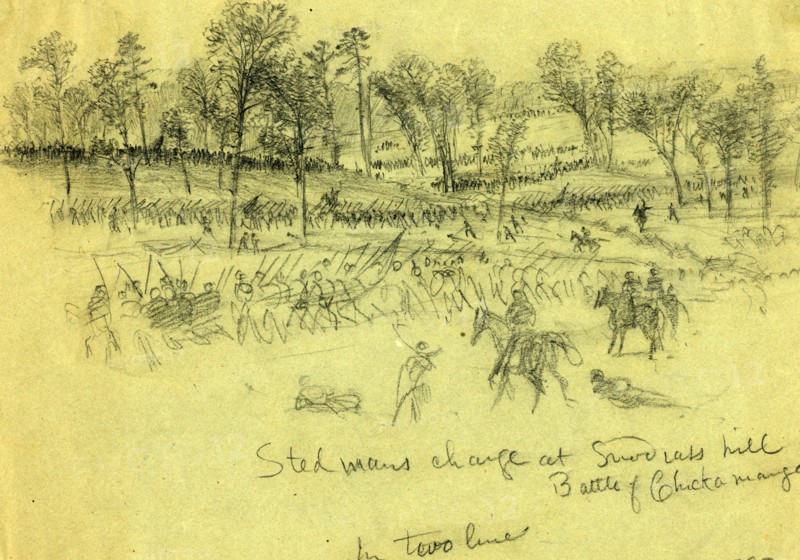 Stedmans charge at Snodrass hill
Battle of Chickamauga
In two line